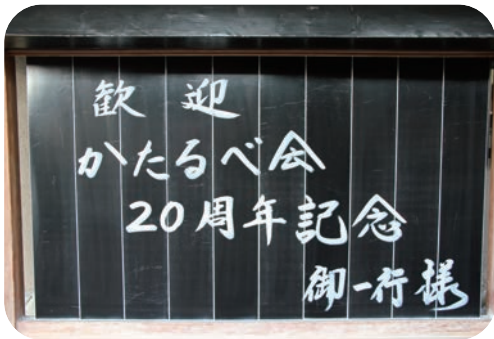 歓迎
かたるべ会
20周年記念
御一行様